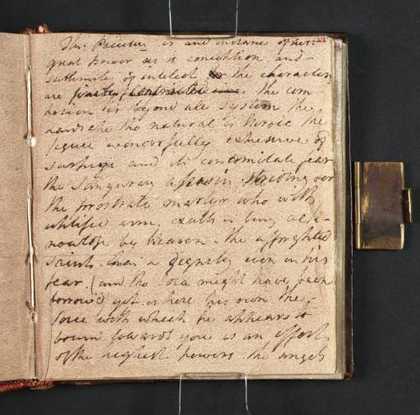 This Picture is an instance of his
great Power as to conception and
sublimity of intellect the characters
are finely contrasted the com
position is beyond all system the
landscape tho natural is Heroic the
figure wonderfully expressive of
surprise and its concomitate fear
the sanguinary assassin striding over
the prostrate martyr who with
uplifted arm exults in being ack-
by heaven. the affrighted
Saint has a dignity even in his
fear (and tho idea might have been
borrowed yet is here his own the
force with which he appears to
bound towards you is an effort
of the highest powers. the angels